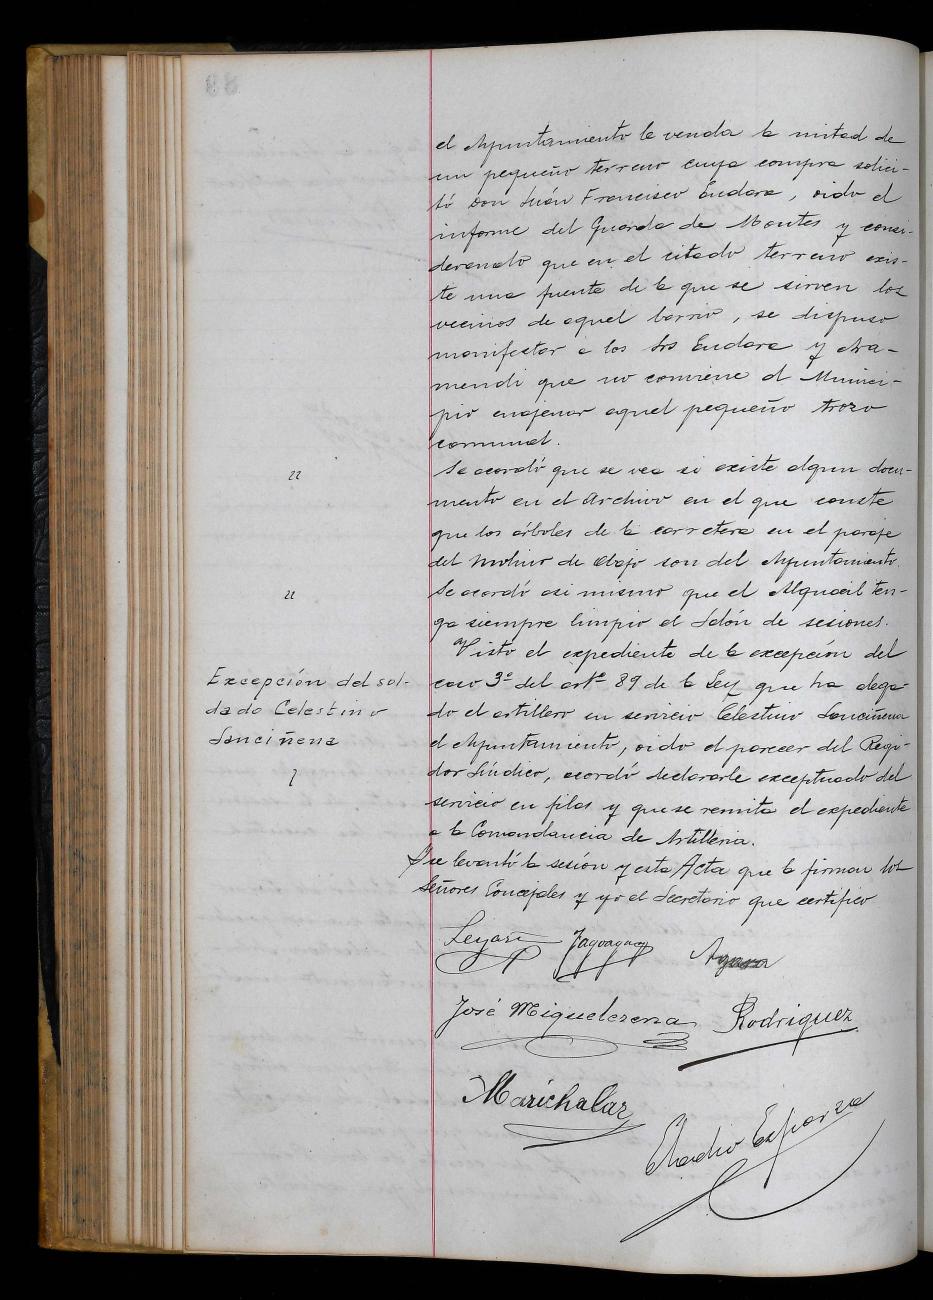 el Ayuntamiento le venda la mitad de
un pequeño terreno cuya compra solici-
tó Don Juán Francisco Endara, oido el
informe del Guarda de Montes y consi-
derando que en el citado terreno exis-
te una fuente de la que se sirven los
vecinos de aquel barrio, se dispuso
manifestar a los Srs Endara y Ara-
mendi que no conviene al Munici-
pio enajenar aquel pequeño trozo
comunal.
"
Se acordó que se vea si existe algun docu-
mento en el Archivo en el que conste
que los árboles de la carretera en el paraje
del Molino de Abajo son del Ayuntamiento.
"
Se acordó asi mismo que el Alguacil ten-
ga siempre limpio el Salón de sesiones.
Excepción del sol-
dado Celestino
Sanciñena
Visto el expediente de la excepción del
caso 3º del artº 89 de la Ley que ha alega-
do el artillero en servicio Celestino Sanciñena
el Ayuntamiento, oido el parecer del Regi-
dor Síndico, acordó declararle exceptuado del
servicio en filas y que se remita el expediente
a la Comandancia de Artilleria.
Y se levantó la sesión y esta Acta que la firman los
Señores Concejales y yo el Secretario que certifico
José Miguelerena Rodriguez
Marichalar
Eladio Esparza